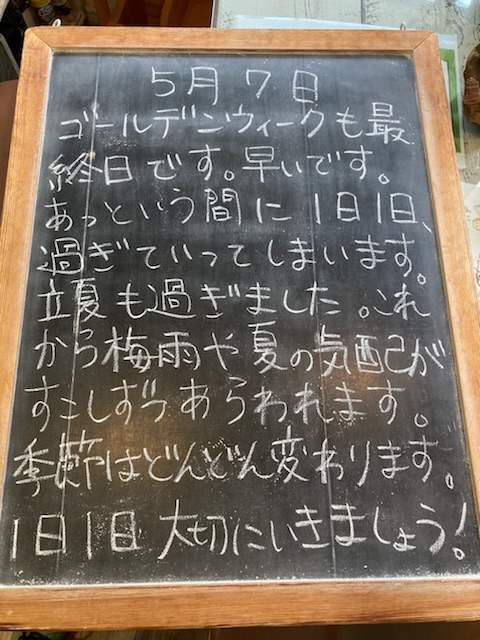 5月7日
ゴールデンウィークも最
終日です。早いです。
あっという間に1日1日、
過ぎていってしまいます。
立夏も過ぎました。これ
から梅雨や夏の気配が
すこしずつあらわれます。
季節はどんどん変わります。
1日1日大切にいきましょう!